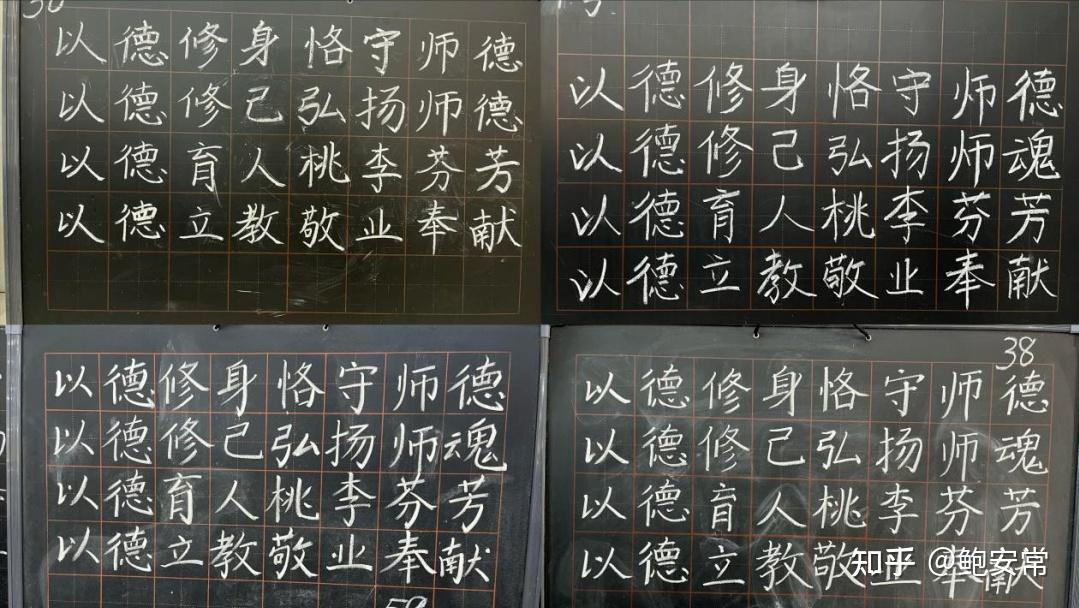 以德修身恪守师德
以德修己弘扬师德
以德育人桃李芬芳
以德立教敬业奉献
以德修身恪守师德
以德修己弘扬师魂
以德育人桃李芬芳
以德立教敬业奉献
以德修身恪守师德
以德修己弘扬师魂
以德育人桃李芬芳
以德立教敬业奉献
38
以德修身恪守师德
以德修己弘扬师魂
以德育人桃李芬芳
以德立教敬业奉献
知乎 @鲍安常